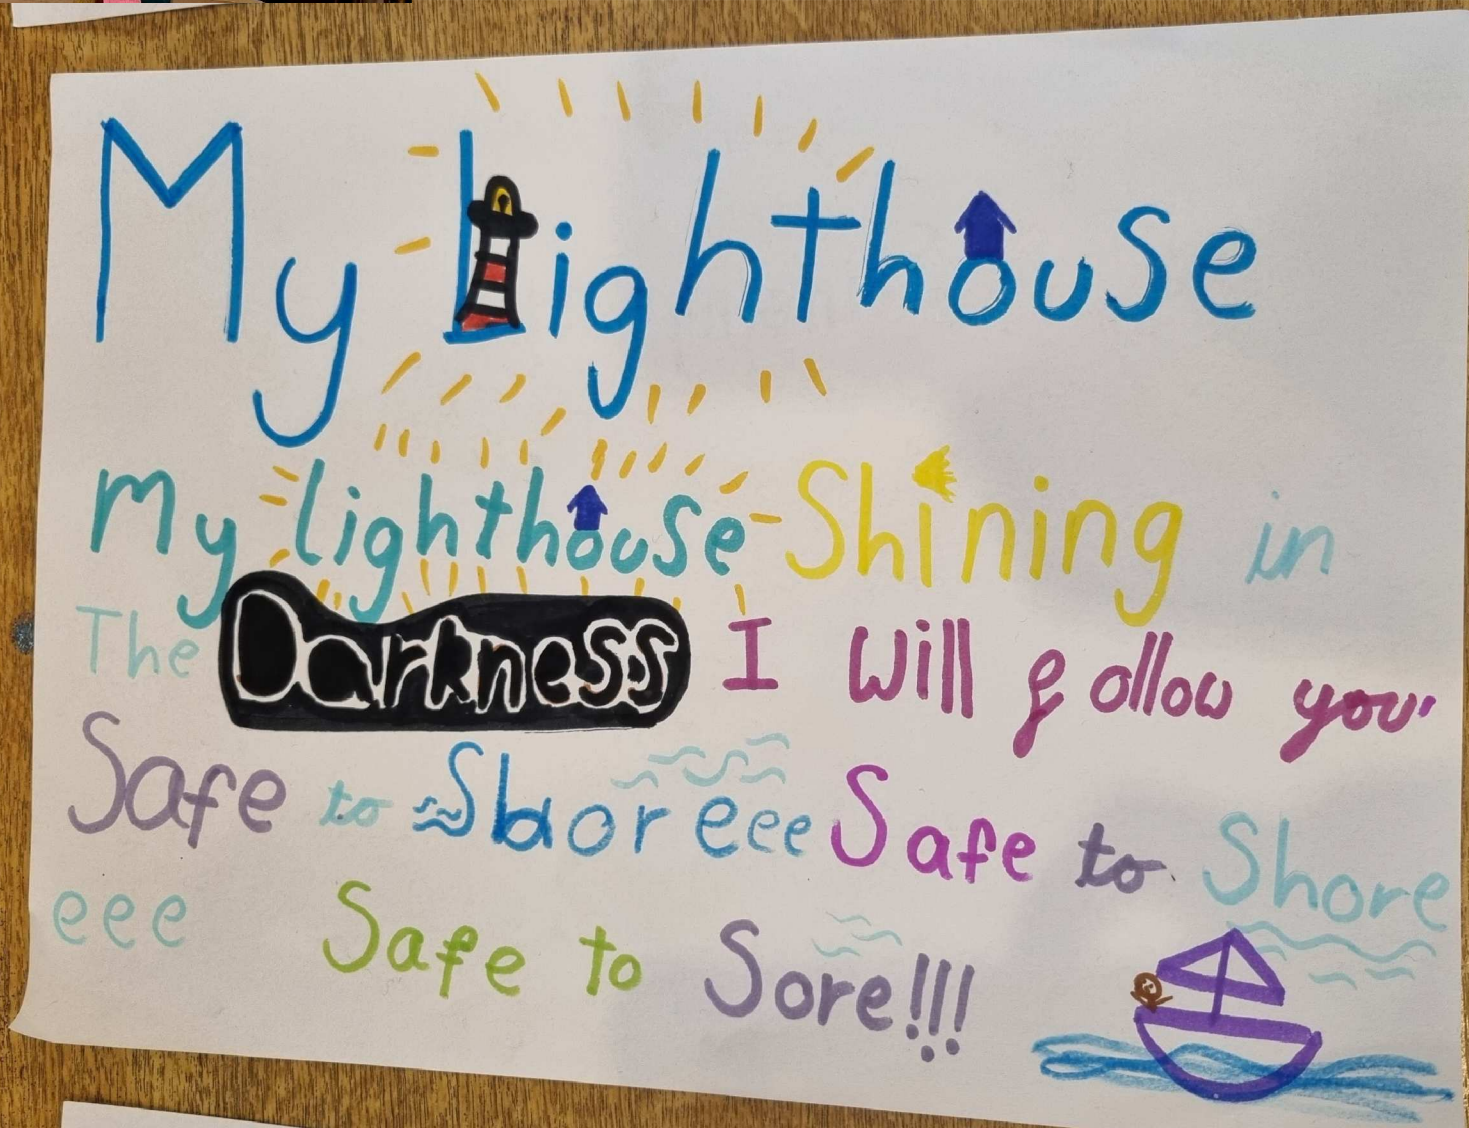 My Lighthouse
My lighthouse Shining in
The Darkness I Will follow you
Safe to Shoreeee Safe to Shore
eee Safe to Sore!!!